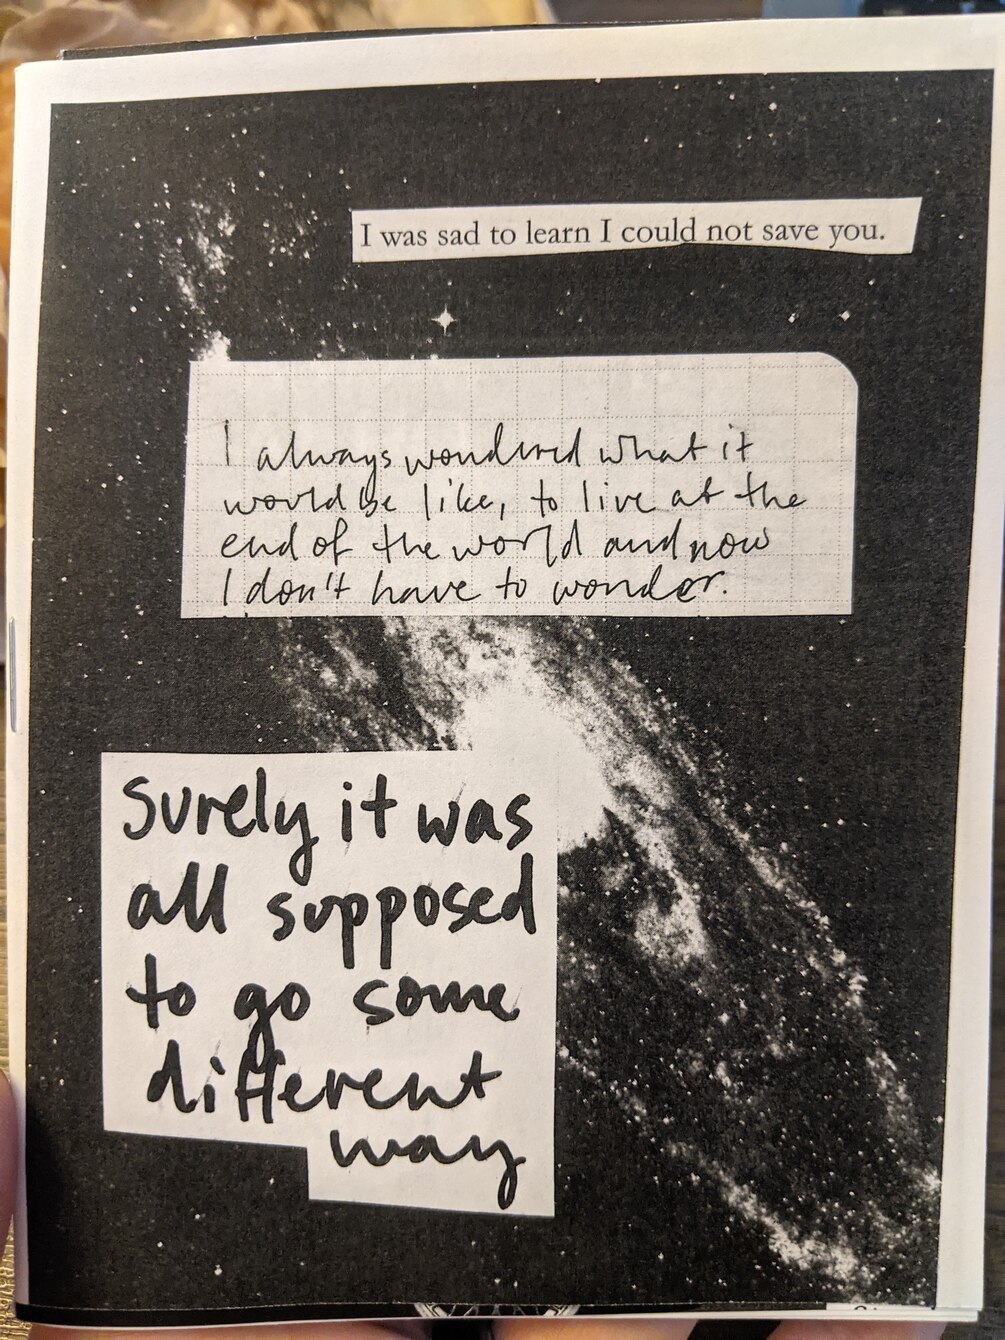 I was sad to learn I could not save you.
I always wondered what it
would be like, to live at the
end of the world and now
I don't have to wonder.
Surely it was
all supposed
to go some
different
way